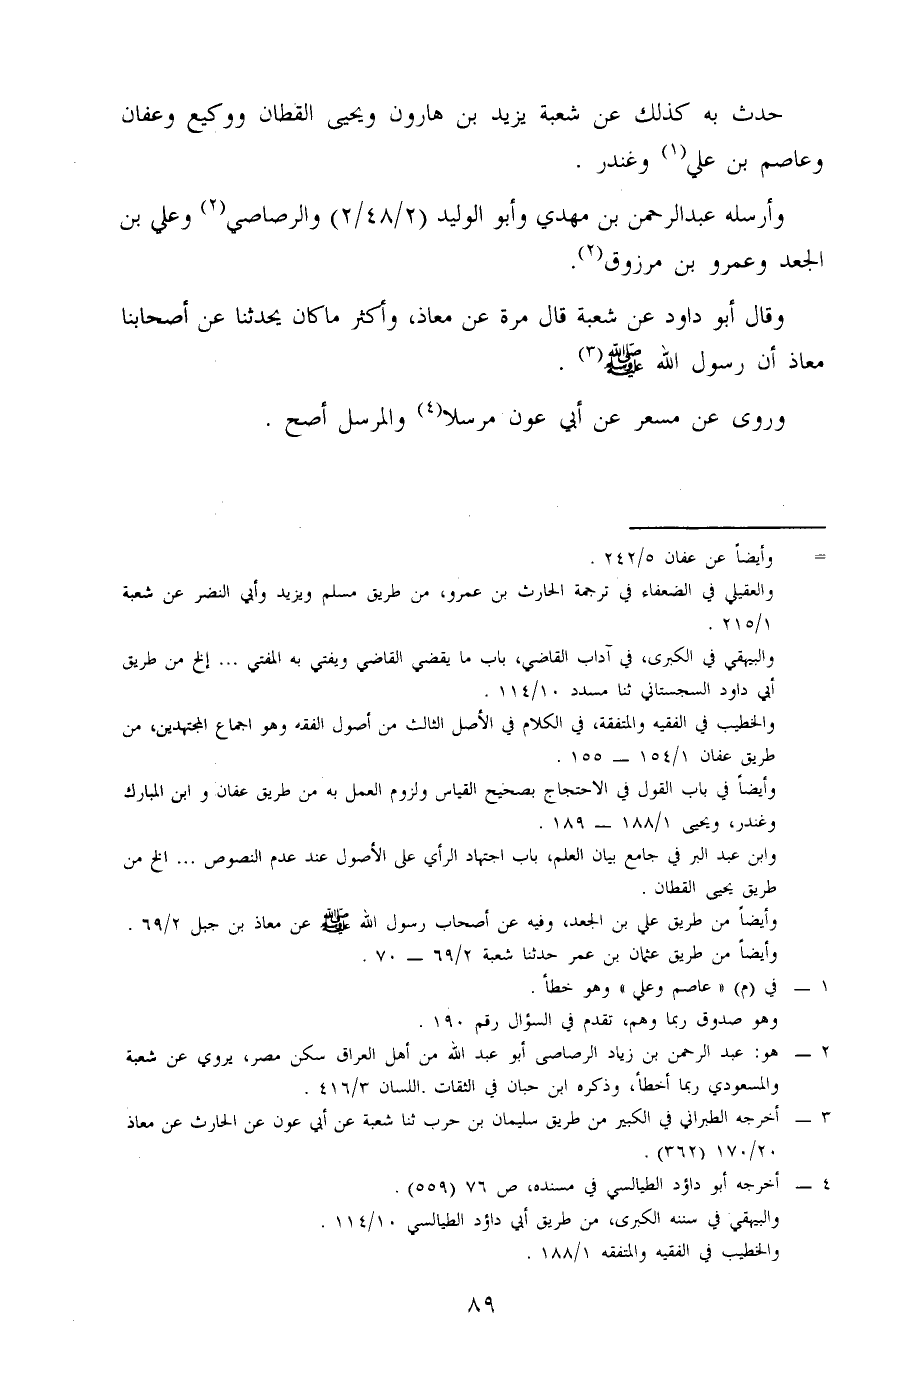 حدث به كذلك عن شعبة يزيد بن هارون ويحيى القطان ووكيع وعفان
وعاصم بن علي(١) وغندر .
وأرسله عبدالرحمن بن مهدي وأبو الوليد (٢/٤٨/٢) والرصاصي(٢) وعلي بن
الجعد وعمرو بن مرزوق(٢).
وقال أبو داود عن شعبة قال مرة عن معاذ، وأكثر ماكان يحدثنا عن أصحابنا
معاذ أن رسول الله ﷺ(٣) .
وروى عن مسعر عن أبي عون مرسلا(٤) والمرسل أصح .
= وأيضاً عن عفان ٢٤٢/٥ .
والعقيلي في الضعفاء في ترجمة الحارث بن عمرو، من طريق مسلم ويزيد وأبي النضر عن شعبة
٢١٥/١ .
والبيهقي في الكبرى، في آداب القاضي، باب ما يقضي القاضي ويفتي به المفتي ... إلخ من طريق
أبي داود السجستاني ثنا مسدد ١١٤/١٠ .
والخطيب في الفقيه والمتفقة، في الكلام في الأصل الثالث من أصول الفقه وهو اجماع المجتهدين، من
طريق عفان ١٥٤/١ — ١٥٥ .
وأيضاً في باب القول في الاحتجاج بصحيح القياس ولزوم العمل به من طريق عفان و ابن المبارك
وغندر، ويحيى ١٨٨/١ — ١٨٩ .
وابن عبد البر في جامع بيان العلم، باب اجتهاد الرأي على الأصول عند عدم النصوص ... الخ من
طريق يحيى القطان .
وأيضاً من طريق علي بن الجعد، وفيه عن أصحاب رسول الله ﷺ عن معاذ بن جبل ٦٩/٢ .
وأيضاً من طريق عثمان بن عمر حدثنا شعبة ٦٩/٢ — ٧٠ .
١ — في (م) « عاصم وعلي » وهو خطأ .
وهو صدوق ربما وهم، تقدم في السؤال رقم ١٩٠ .
٢ — هو: عبد الرحمن بن زياد الرصاصى أبو عبد الله من أهل العراق سكن مصر، يروي عن شعبة
والمسعودي ربما أخطأ، وذكره ابن حبان في الثقات .اللسان ٤١٦/٣ .
٣ — أخرجه الطبراني في الكبير من طريق سليمان بن حرب ثنا شعبة عن أبي عون عن الحارث عن معاذ
١٧٠/٢٠ (٣٦٢) .
٤ — أخرجه أبو داؤد الطيالسي في مسنده، ص ٧٦ (٥٥٩) .
والبيهقي في سننه الكبرى، من طريق أبي داؤد الطيالسي ١١٤/١٠ .
والخطيب في الفقيه والمتفقه ١٨٨/١ .
٨٩